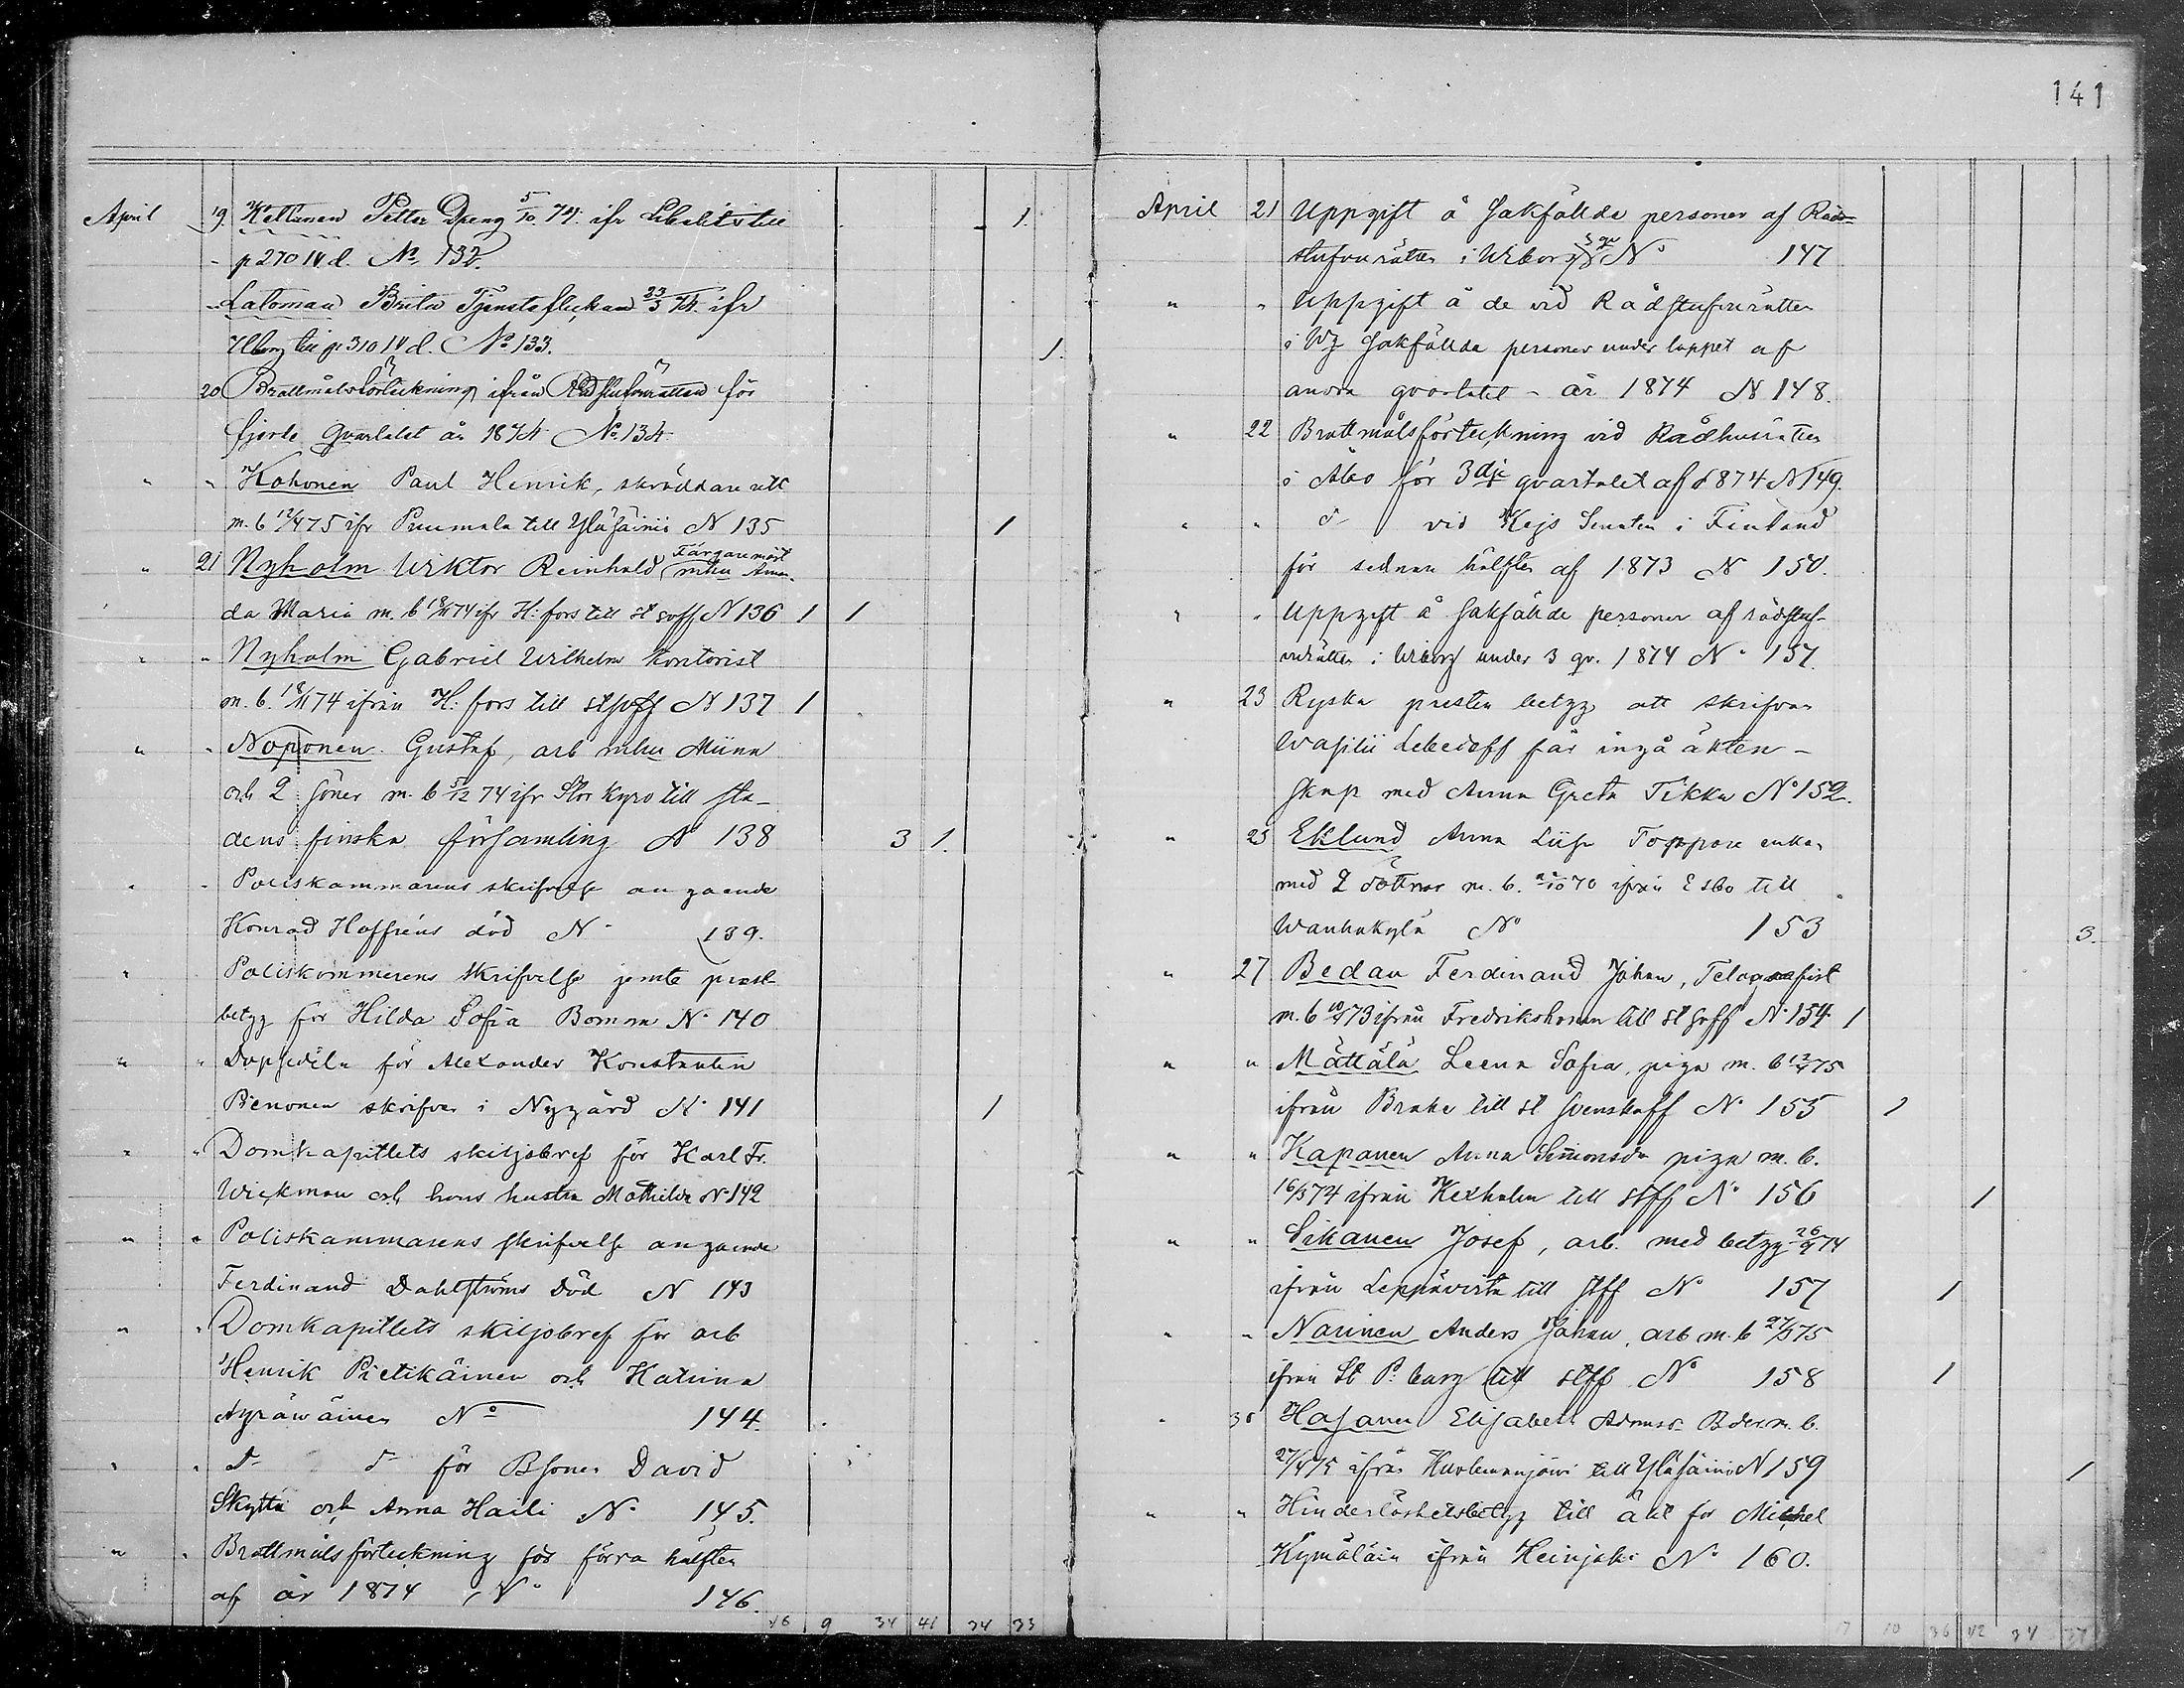 141
April 19. Kettunen Petter Dreng 5/10 74. ifr Libelits till 1.
p 270 IV d. No 132.
Latoman Brita Tjensteflickan 23/3 74. ifr
Wborg till p 310 IV d. No 133. 1.
20 Brottmålsförteckning ifrån Rådstufvurätten för
fjerde Qvartalet år 1874 No 134
" " Kohonen Paul Henrik, skräddare
m. b 12/4 75 ifr Puumala till N 135 1
" 21 Nyholm Wiktor Reinhold, Färgaremäst mhu Aman-
da Maria m. b 18/11 74 ifr H:fors till st soff N 136 1 1
" " Nyholm Gabriel Wilhelm Kontorist
m. b. 18/11 74 ifrån H:fors till st soff N 137 1
" " Noponen Gustaf, arb mhu Miina
och 2 söner m. b 5/12 74 ifr Stor Kyro till sta-
dens finska församling N 138 3 1.
" " Poliskammarens skrifvelse angaende
Konrad Hoffréns död N 139.
" Poliskammerens skrifvelse jemte prest-
betyg för Hilda Sofia Bomm N. 140
" " Dopsedeln för Alexander Konstantin
Pienonen skrifven i Nygård N. 141 1
" " Domkapitlets skiljobref för Karl Fr.
Wickman och hans hustru Mathilda N. 142
" " Poliskammarens skrifvelse angaende
Ferdinand Dahlströms Död N 143
" " Domkapitlets skiljobref för arb
Henrik Pietikäinen och Katrina
Ayräwäinen No 144.
" " d- d- för Bsonen David
Skyttä och Anna Haili N. 145.
" " Brottmålsförteckning för förra hälften
af år 1874 N. 146.
46 9 34 41 34 33
April 21 Uppgift å sakfällda personer af Råd-
stufvurätten i Wiborg 3 qv No 147
" " Uppgift å de vid Rådstufvurätten
i Wg sakfällda personer under loppet af
andra qvartalet - år 1874 N 148.
" 22 Brottmålsförteckning vid Rådhusrätten
i Åbo för 3dje qvartalet af 1874 N 149.
" " d- vid Kejs Senaten i Finland
för sednare hälften af 1873 N 150.
" " Uppgift å sakfällde personer af rådstuf-
vurätten i Wiborg under 3 qv. 1874 N. 151.
" 23 Ryska presten betyg att skrifvaren
Wasilii Lebedeff får ingå äkten-
skap med Anna Greta Tikka No 152.
" 25 Eklund Anna Luise enka
med 2 döttrar m. b. 22/10 70 ifrån Esbo till
Wanhakylä No 153 3.
" 27 Bedan Ferdinand Johan, Telegrafist
m. b 10/4 73 ifrån Fredrikshamn till st soff N. 154 1
" " Mättälä Leena Sofia, piga m. b 12/4 75
ifrån Brahe till st svenskaff N. 155 1
" " Kapanen Anna Simonsdr piga m. b.
16/5 74 ifrån Kexholm till stff N. 156 1
" " Sikanen Josef, arb. med betyg 26/9 74
ifrån Leppävirta till stff No 157 1
" " Narinen Anders Johan, arb m. b 27/3 75
ifrån St P:burg till stff No 158 1
" 30 Hasanen Elisabeth Adamsdr Bdr m. b.
27/4 75 ifrån till N 159 1
" " Hinderlöshetsbetyg till äkt för Michel
Kymäläin ifrån Heinjoki N. 160.
17 10 36 42 34 37